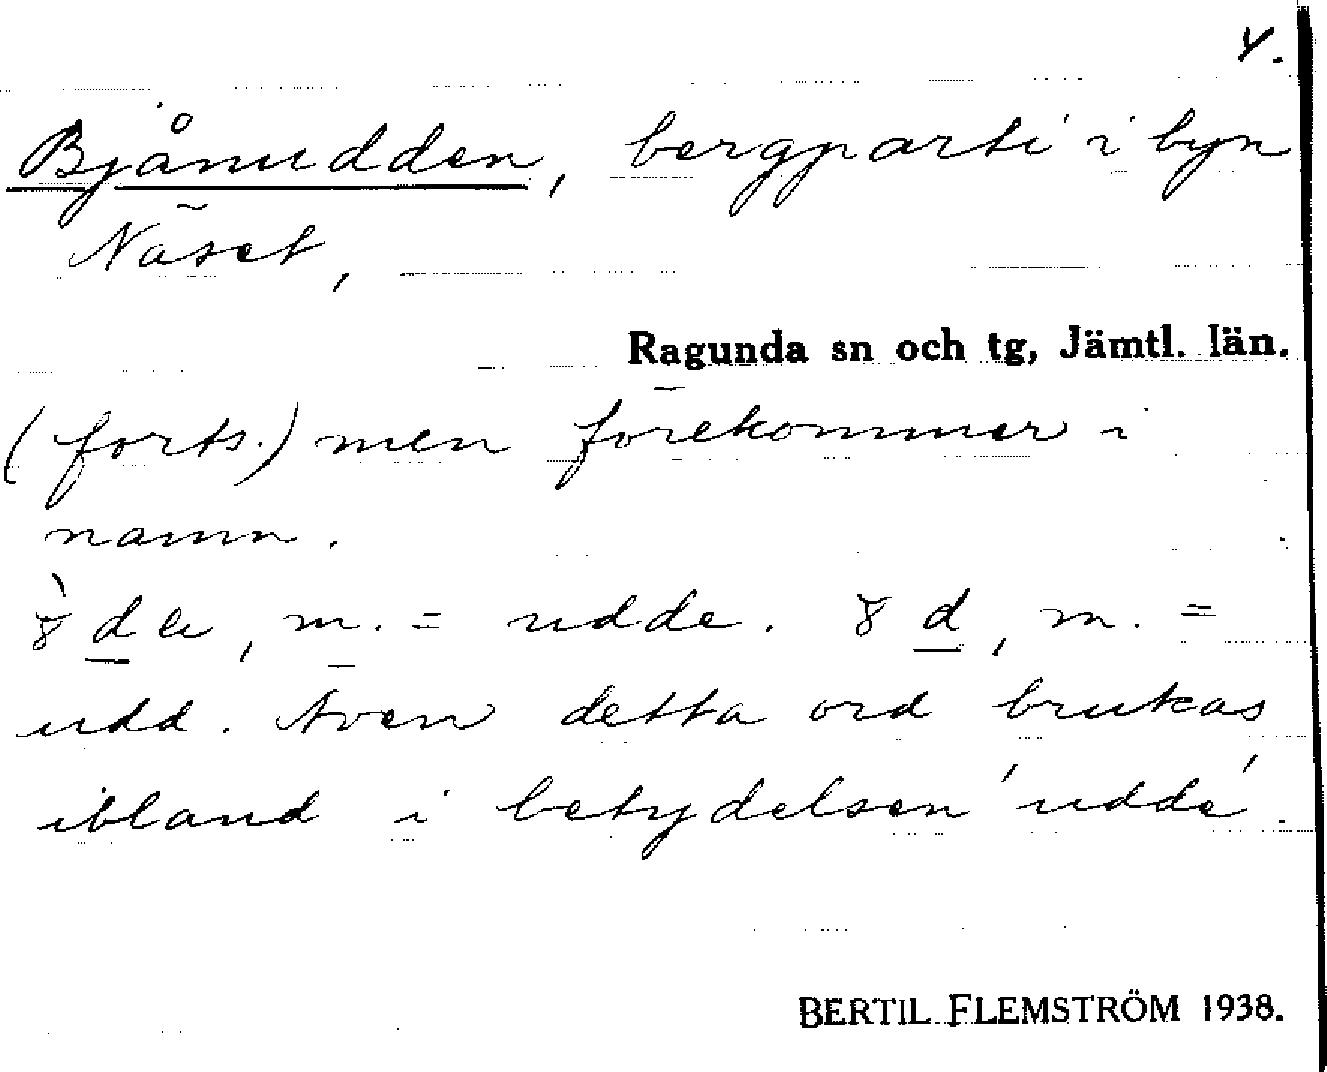 4.
Bjånudden, bergparti i byn
Näset,
Ragunda sn och tg, Jämtl. län.
(forts.) men förekommer i
namn.
m. = udde. m. =
udd. Även detta ord brukas
ibland i betydelsen 'udde'.
BERTIL FLEMSTRÖM 1938.